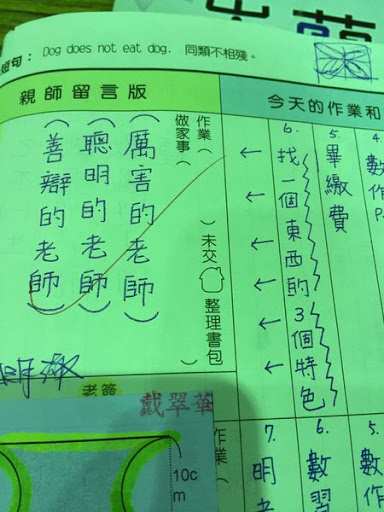 短句： Dog does not eat dog. 同類不相殘。
親師留言版
今天的作業和
4. 數作P.
5. 畢繳費
6. 找一個東西的3個特色
← ← ← ← ←
作業（ ）未交
做家事（ ）整理書包
（厲害的老師）
（聰明的老師）
（善辯的老師）
戴翠華
5. 數作
6. 數習
7. 明
作業（
10c
m